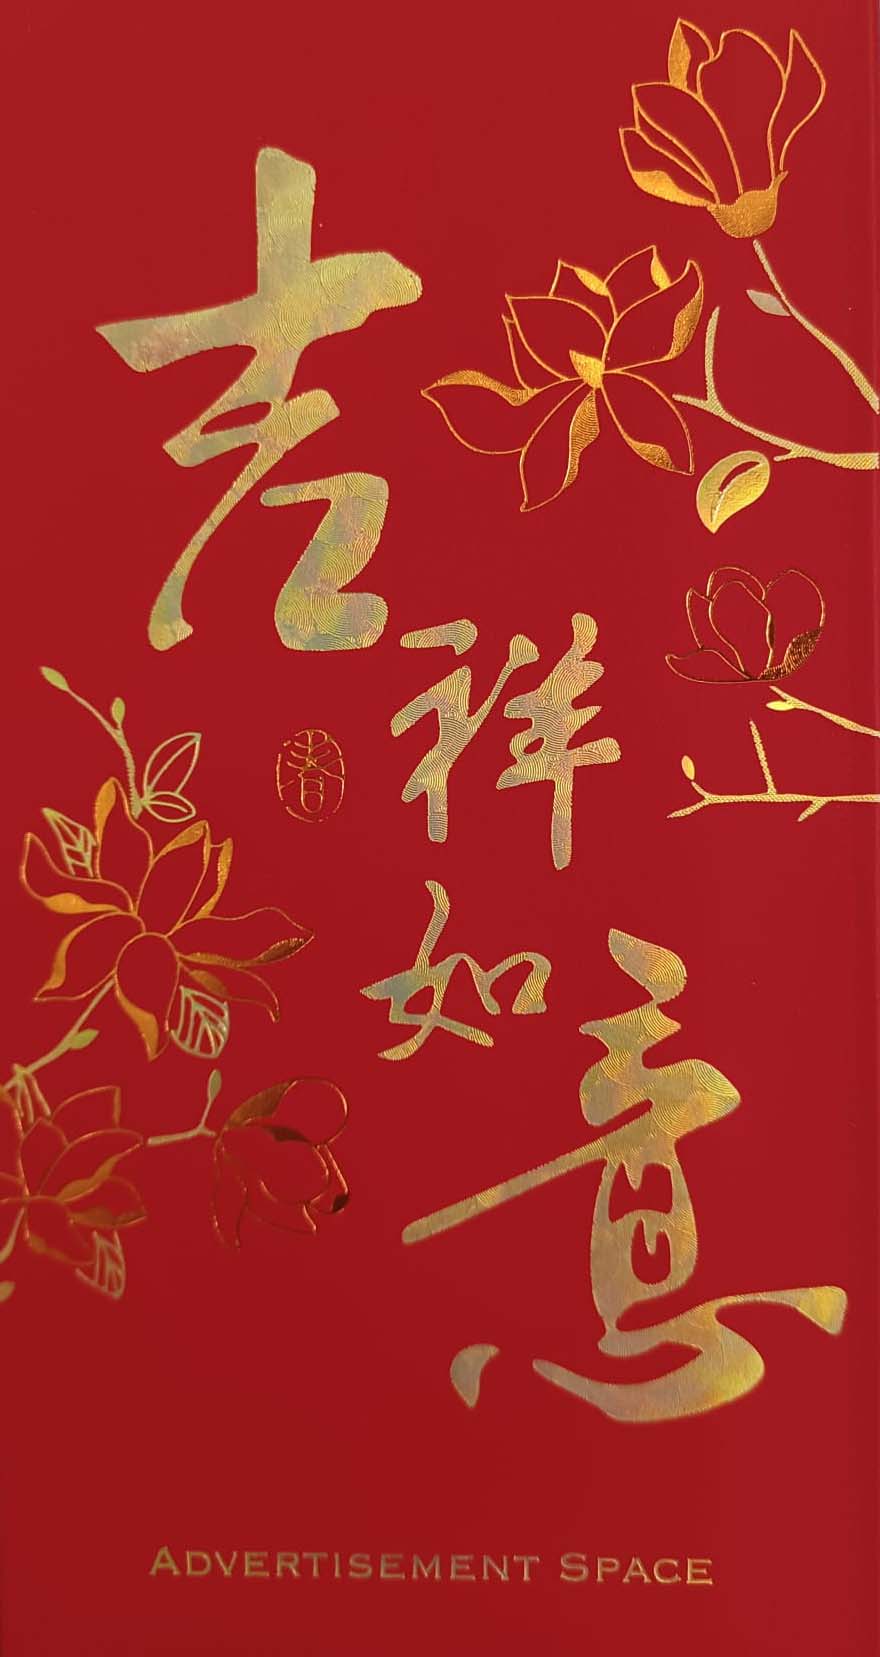 吉
祥
如
意
春
ADVERTISEMENT SPACE